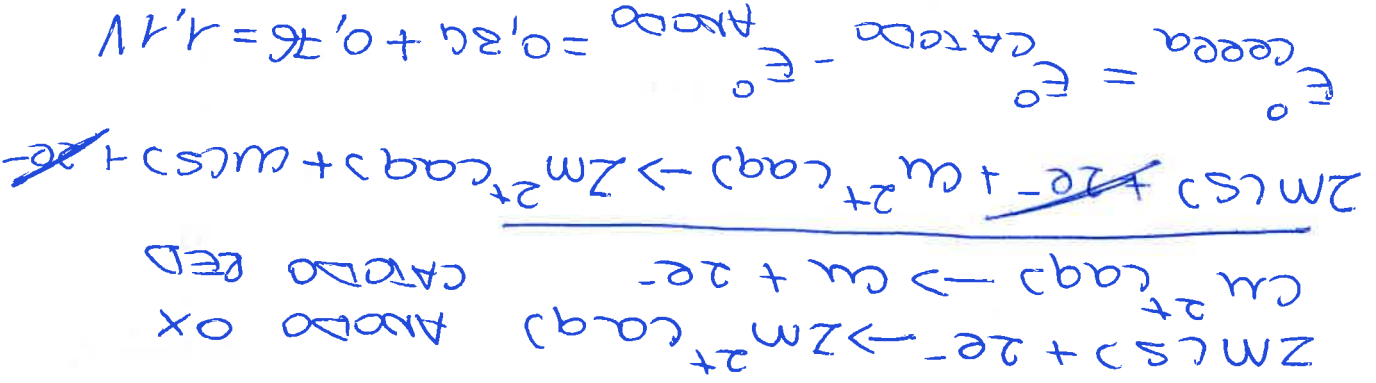 Zn(s) + 2e⁻ → Zn²⁺(aq) ANODO OX
Cu²⁺(aq) → Cu + 2e⁻ CATODO RED
Zn(s) + 2e⁻ + Cu²⁺(aq) → Zn²⁺(aq) + Cu(s) + 2e⁻
E⁰cella = E⁰CATODO - E⁰ANODO = 0,34 + 0,76 = 1,1V